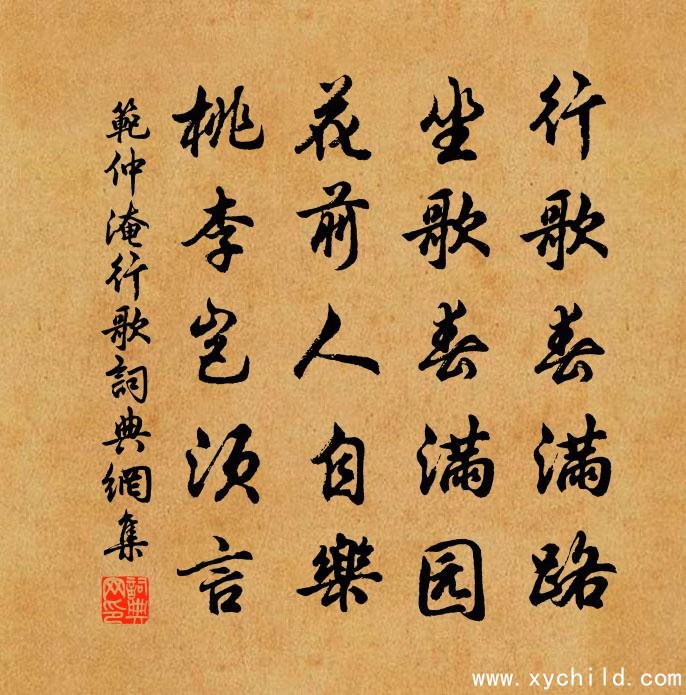 行歌春满路
坐歌春满园
花前人自樂
桃李岂须言
範仲淹行歌詞典網集
詞典网印
www.xychild.com